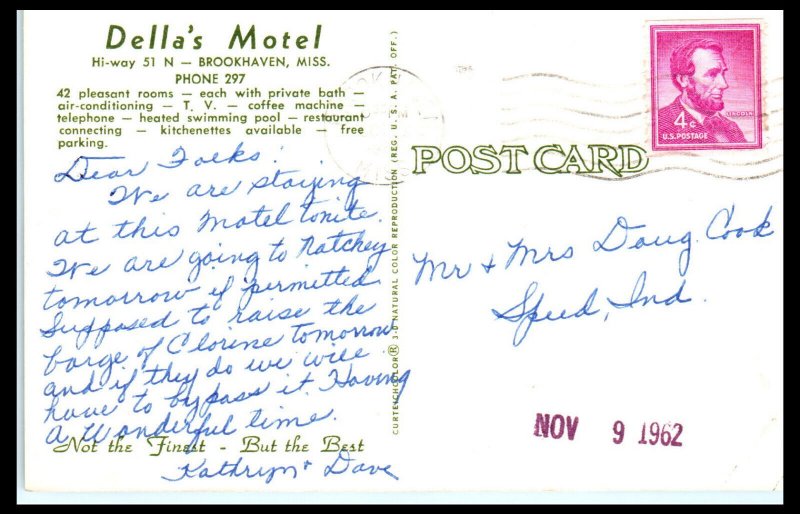 Della's Motel
Hi-way 51 N — BROOKHAVEN, MISS.
PHONE 297
42 pleasant rooms — each with private bath —
air-conditioning — T. V. — coffee machine —
telephone — heated swimming pool — restaurant
connecting — kitchenettes available — free
parking.
Dear Folks:
We are staying
at this Motel tonite.
We are going to Natchey
tomorrow if permitted
Supposed to raise the
barge of Clorine tomorrow
and if they do we will
have to bypass it. Having
a Wonderful time.
Not the Finest - But the Best
Kathryn + Dave
CURTEICHCOLOR® 3-D NATURAL COLOR REPRODUCTION (REG. U. S. A. PAT. OFF.)
POST CARD
LINCOLN
4¢
U.S. POSTAGE
Mr + Mrs Doug. Cook
Speed, Ind.
NOV 9 1962